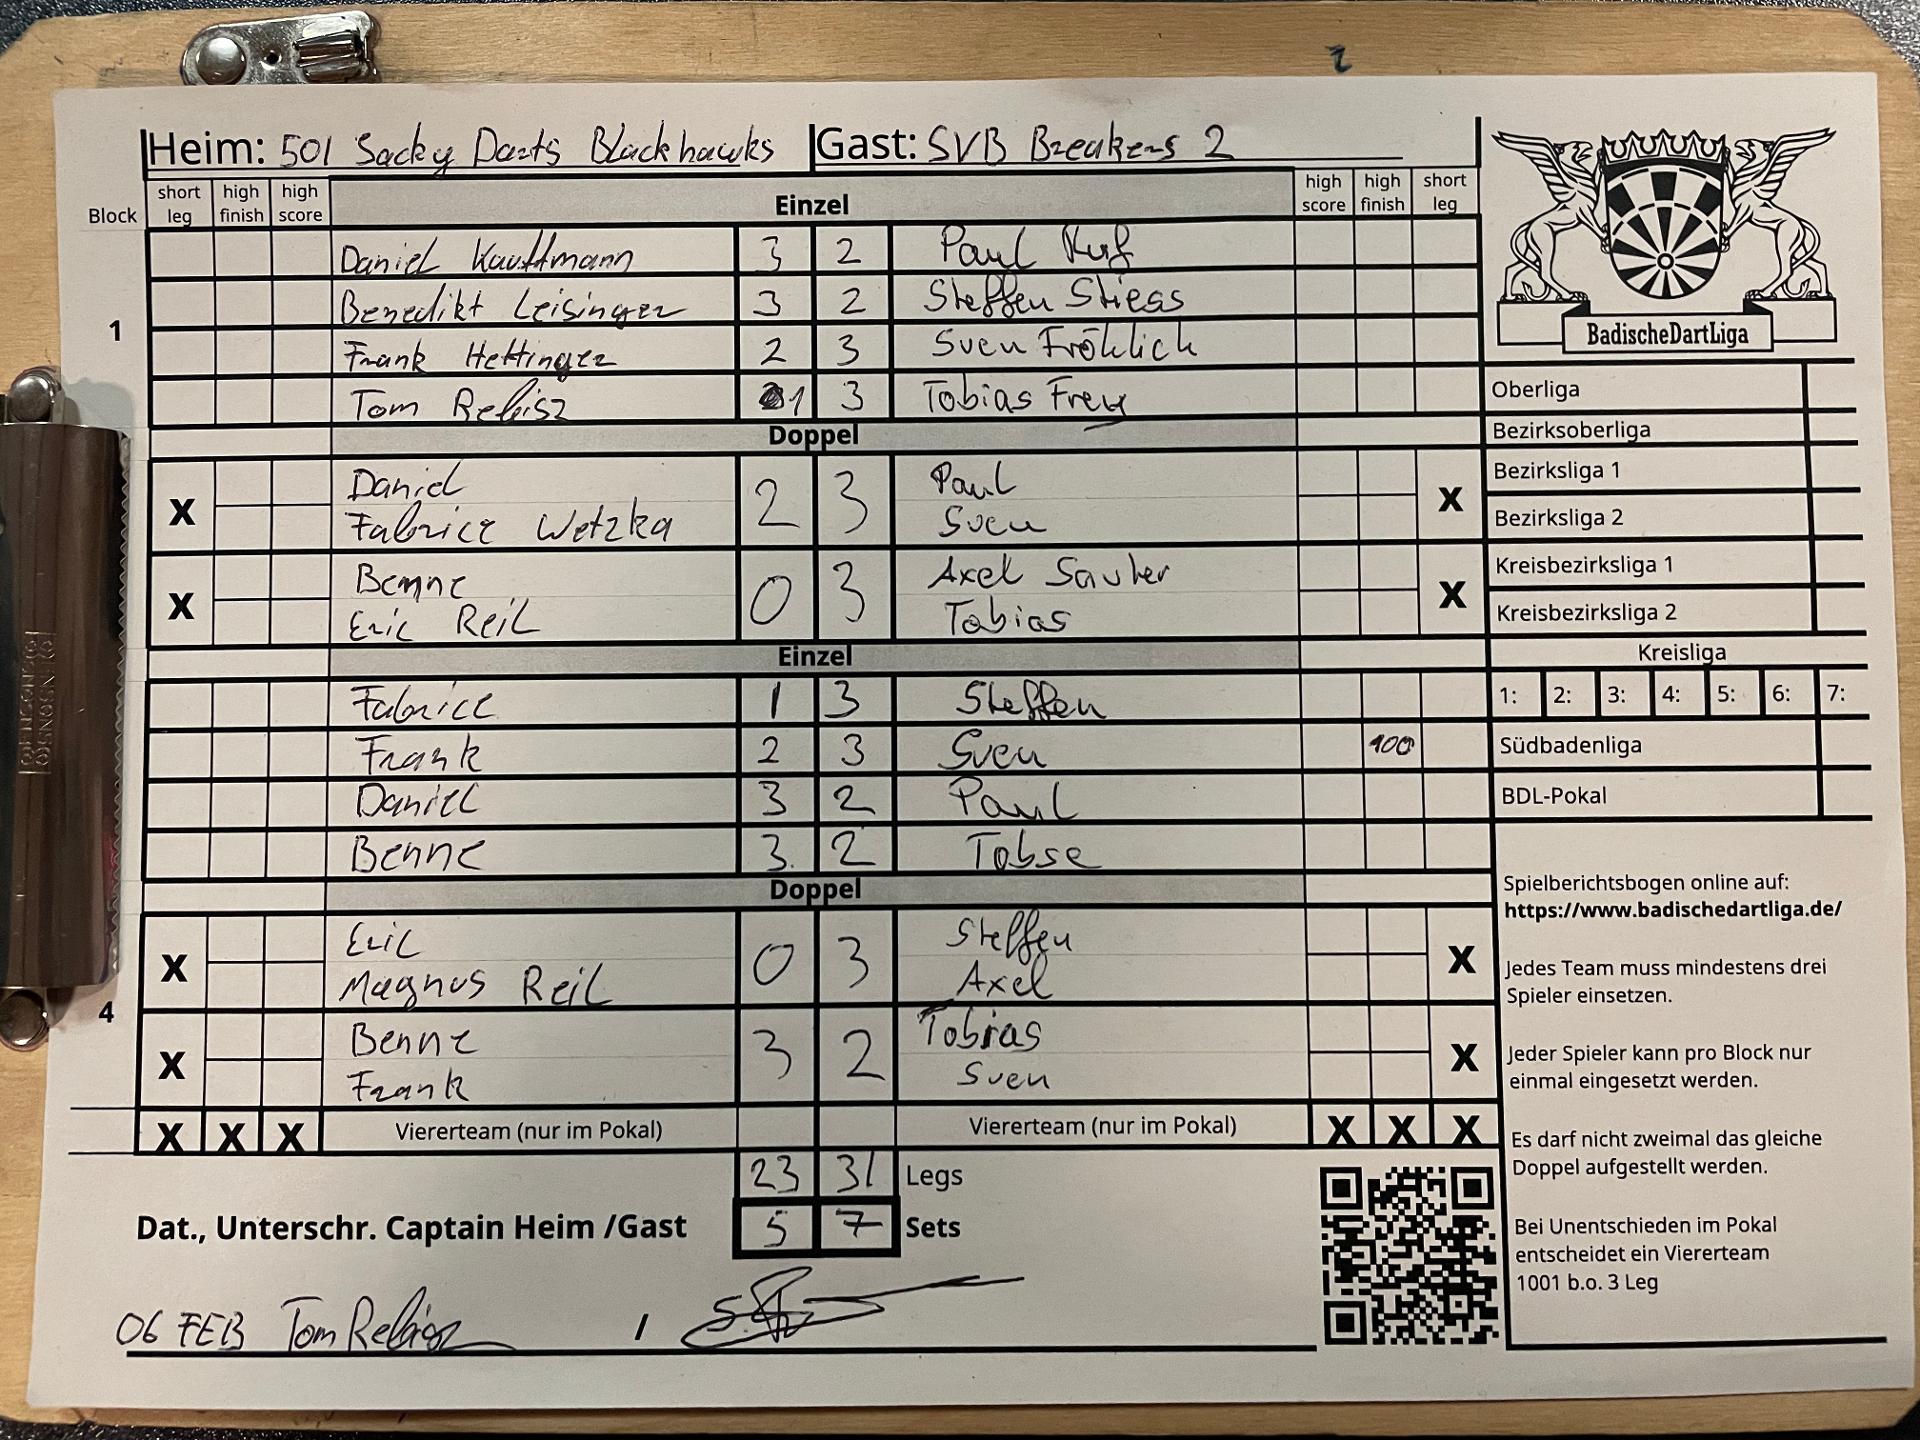 Heim: 501 Sacky Darts Blackhawks Gast: SVB Breakers 2
Block short leg high finish high score Einzel high score high finish short leg
Daniel Kauffmann 3 2 Paul Kuf
Benedikt Leisinger 3 2 Steffen Stiess
1
Frank Hettinger 2 3 Sven Fröhlich
Tom Rebisz 1 3 Tobias Frey
Doppel
X Daniel 2 3 Paul X
Fabrice Wetzka Sven
X Benne 0 3 Axel Sauter X
Eric Reil Tobias
Einzel
Fabrice 1 3 Steffen
Frank 2 3 Sven 100
Daniel 3 2 Paul
Benne 3 2 Tobse
Doppel
X Eric 0 3 Steffen X
Magnus Reil Axel
4
X Benne 3 2 Tobias X
Frank Sven
X X X Viererteam (nur im Pokal) Viererteam (nur im Pokal) X X X
23 31 Legs
Dat., Unterschr. Captain Heim /Gast 5 7 Sets
06 FEB Tom Rebisz /
BadischeDartLiga
Oberliga
Bezirksoberliga
Bezirksliga 1
Bezirksliga 2
Kreisbezirksliga 1
Kreisbezirksliga 2
Kreisliga
1: 2: 3: 4: 5: 6: 7:
Südbadenliga
BDL-Pokal
Spielberichtsbogen online auf:
https://www.badischedartliga.de/
Jedes Team muss mindestens drei
Spieler einsetzen.
Jeder Spieler kann pro Block nur
einmal eingesetzt werden.
Es darf nicht zweimal das gleiche
Doppel aufgestellt werden.
Bei Unentschieden im Pokal
entscheidet ein Viererteam
1001 b.o. 3 Leg